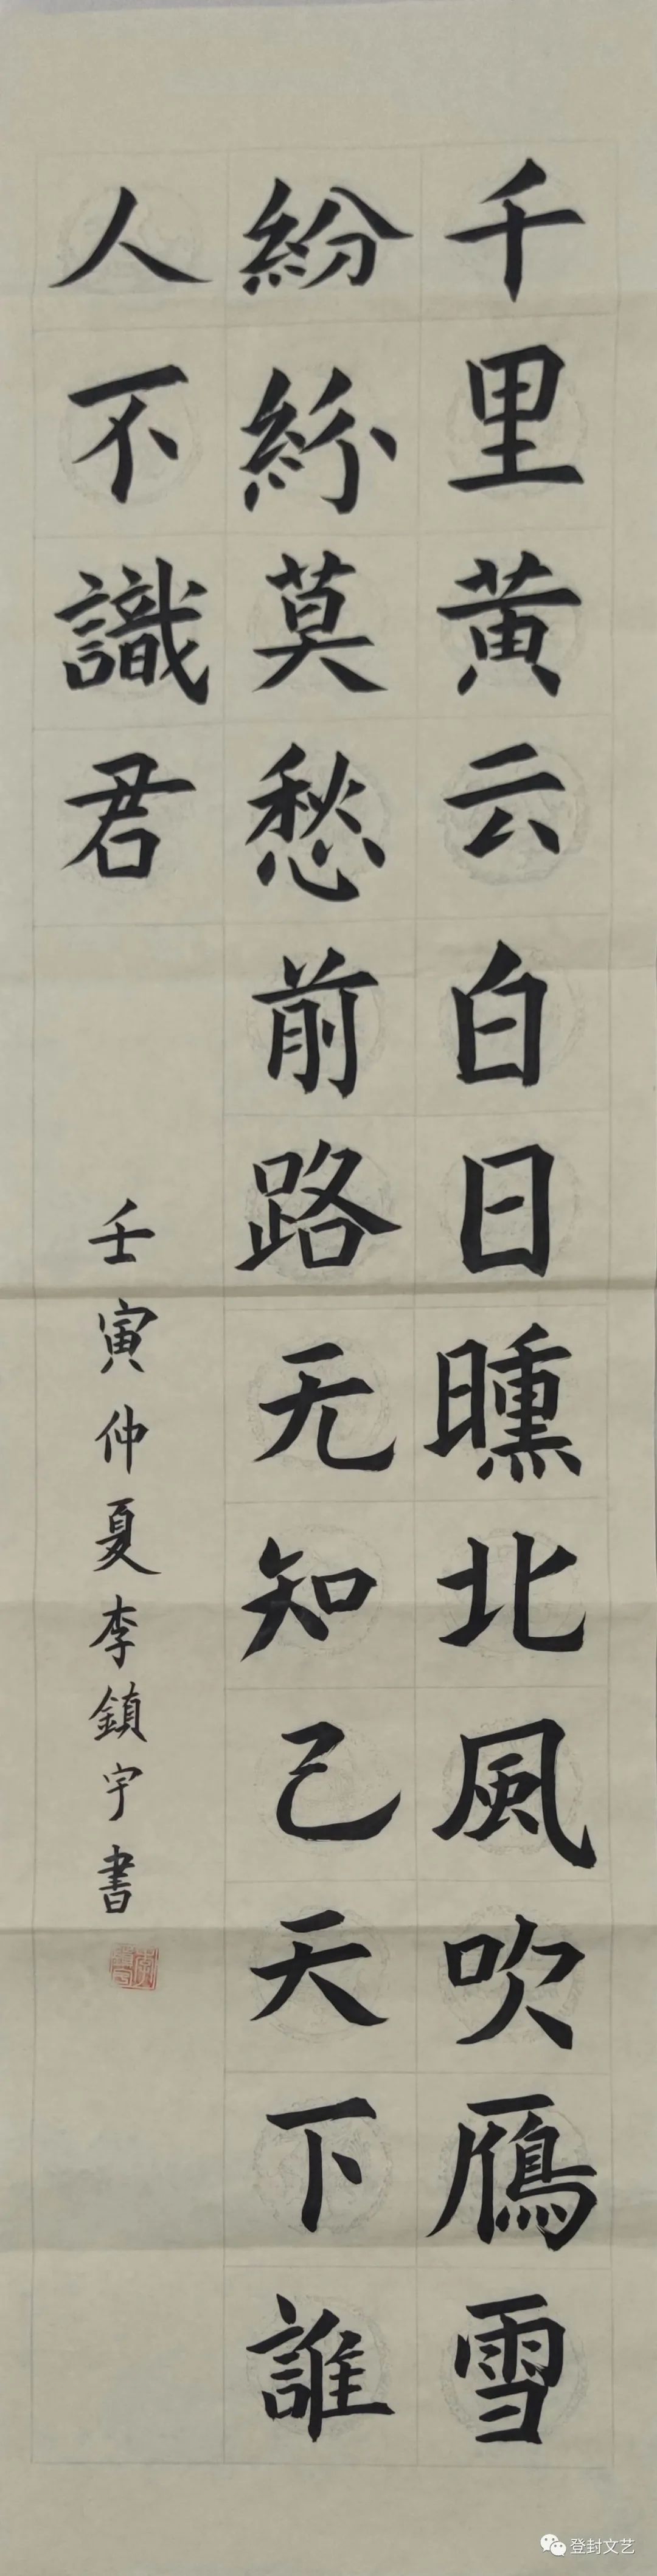 千里黄云白日曛北風吹鴈雪
紛紛莫愁前路无知己天下誰
人不識君
壬寅仲夏李鎮宇書
登封文艺